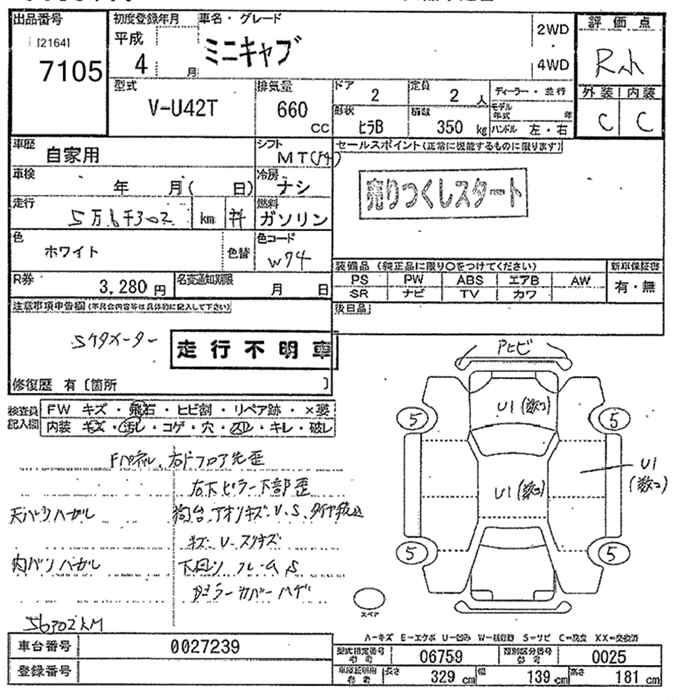 出品番号
[2164]
7105
初度登録年月
平成
4 月
車名・グレード
ミニキャブ
2WD
4WD
評価点
外装 内装
C C
型式
V-U42T
排気量
660
CC
ドア
2
定員
2 人
形状
ヒラB
積載
350 kg
ディーラー・並行
モデル年式 年
ハンドル 左・右
車歴
自家用
シフト
MT(F4)
セールスポイント(正常に機能するものに限ります)
売りつくしスタート
車検
年 月( 日)
冷房
ナシ
走行
5万6千302 km
燃料
ガソリン
色
ホワイト
色替
色コード
W74
装備品(純正品に限り○をつけてください)
PS PW ABS エアB AW
SR ナビ TV カワ
新車保証書
有・無
R券
3,280円
名変通知期限
月 日
後日品
注意事項申告欄(不具合内容等は具体的に記入して下さい)
5ケタメーター
走行不明車
修復歴 有〔箇所 〕
検査員記入欄
FW キズ・飛石・ヒビ割・リペア跡・×要
内装 キズ・汚レ・コゲ・穴・スレ・キレ・破レ
Fパネル、右ドフロア先歪
右下ピラー下部歪
天バリハガレ
内バリハガレ
56302KM
アヒビ
U1(数コ)
U1(数コ)
U1
(数コ)
5 5
5 5
スペア
A=キズ E=エクボ U=凹み W=補修跡 S=サビ C=腐食 XX=交換済
車台番号
0027239
登録番号
型式指定番号
参考
06759
類別区分番号
参考
0025
車検証明用
参考
長さ
329 cm
幅
139 cm
高さ
181 cm